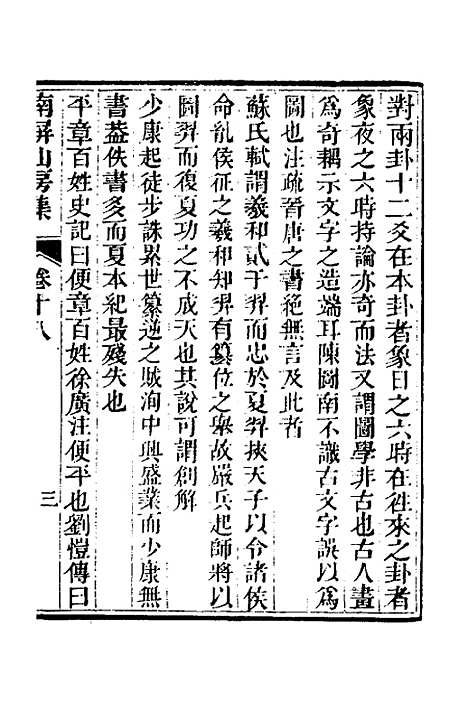 對兩卦十二爻在本卦者象日之六時在往來之卦者
象夜之六時持論亦奇而法又謂圖學非古也古人畫
爲奇耦示文字之造端耳陳圖南不識古文字誤以爲
圖也注疏晉唐之書絕無言及此者
蘇氏軾謂羲和貳于羿而忠於夏羿挾天子以令諸侯
命胤侯征之羲和知羿有簒位之舉故嚴兵起師將以
圖羿而復夏功之不成天也其說可謂創解
少康起徒步誅累世簒逆之賊洵中興盛業而少康無
書葢佚書多而夏本紀最殘失也
平章百姓史記曰便章百姓徐廣注便平也劉愷傳曰
南屏山房集
卷十八
三